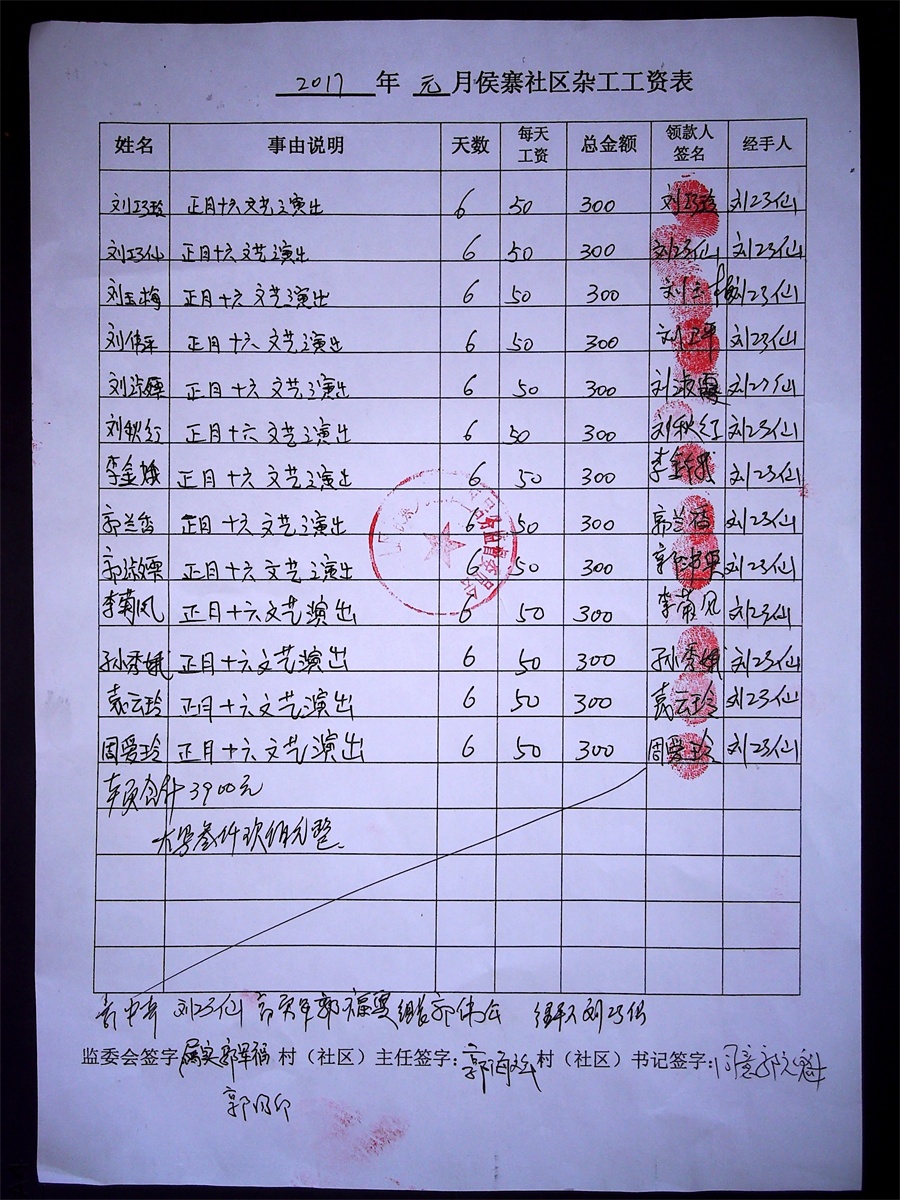 2017 年 元 月侯寨社区杂工工资表
姓名 事由说明 天数 每天工资 总金额 领款人签名 经手人
刘巧玲 正月十六文艺演出 6 50 300 刘巧玲 刘巧仙
刘巧仙 正月十六文艺演出 6 50 300 刘巧仙 刘巧仙
刘玉梅 正月十六文艺演出 6 50 300 刘玉梅 刘巧仙
刘伟平 正月十六文艺演出 6 50 300 刘卫平 刘巧仙
刘淑 正月十六文艺演出 6 50 300 刘淑霞 刘巧仙
刘秋红 正月十六文艺演出 6 50 300 刘秋红 刘巧仙
李金娥 正月十六文艺演出 6 50 300 李金娥 刘巧仙
郭兰香 正月十六文艺演出 6 50 300 郭兰香 刘巧仙
郭淑 正月十六文艺演出 6 50 300 刘巧仙
李菊凤 正月十六文艺演出 6 50 300 李菊凤 刘巧仙
孙秀娥 正月十六文艺演出 6 50 300 孙秀娥 刘巧仙
袁云玲 正月十六文艺演出 6 50 300 袁云玲 刘巧仙
周爱玲 正月十六文艺演出 6 50 300 周爱玲 刘巧仙
本页合计3900元
大写叁仟玖佰元整
刘巧仙 郭福 组长郭伟 经手人刘巧仙
监委会签字 属实郭军福 村（社区）主任签字: 郭 村（社区）书记签字: 同意郭文魁
郭